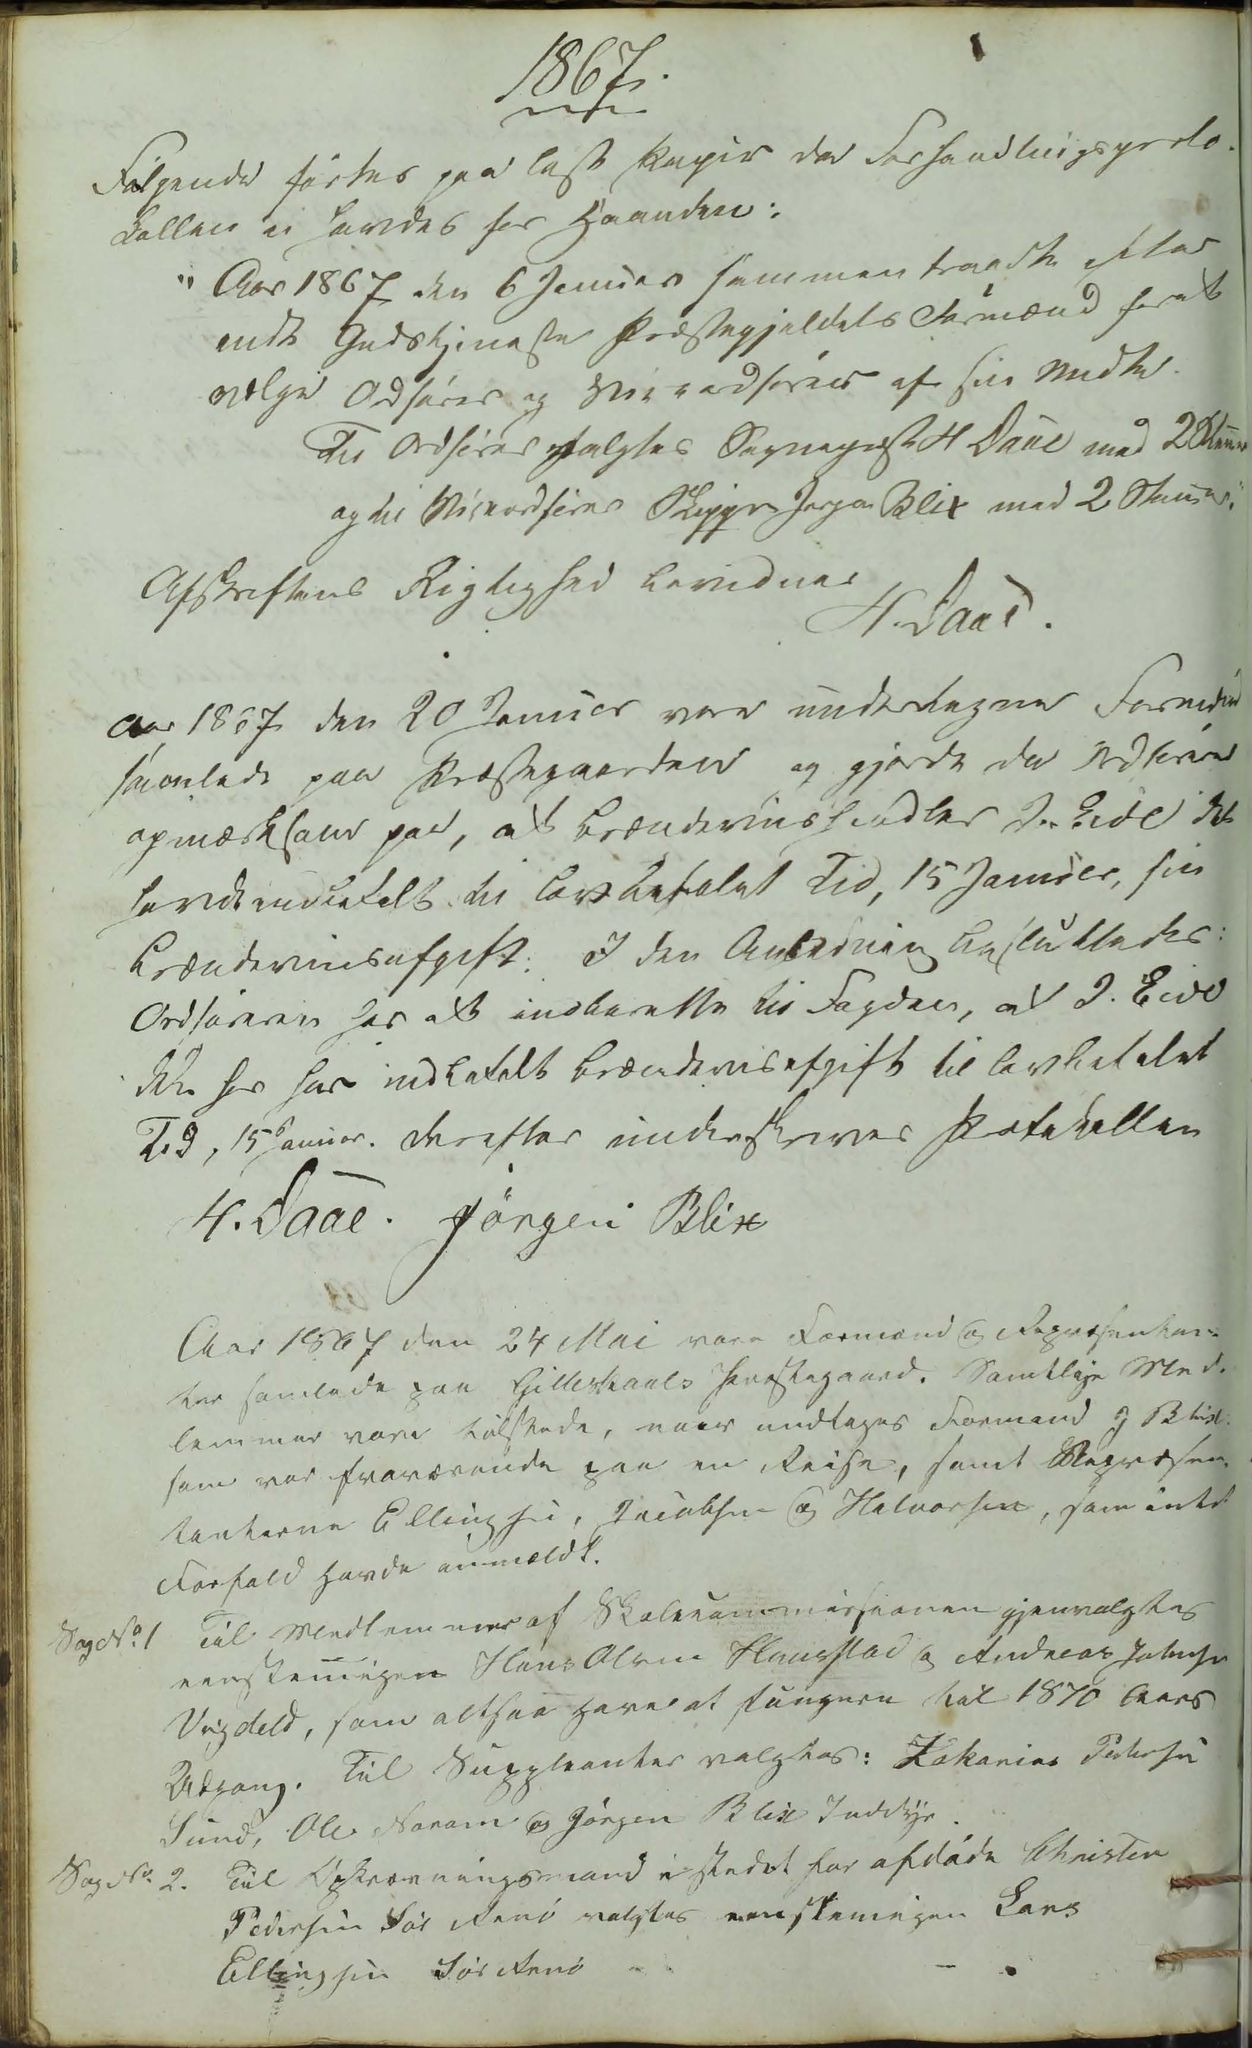 1867.
Følgende førtes paa løst Papir da Forhandlingsproto-
kollen ei havdes for Haanden:
"Aar 1867 den 6 Januar sammentraadte efter
endt Gudstjeneste Præstegjeldets Formænd forat
vælge Ordfører og Viceordfører af sin Midte.
Til Ordfører valgtes Sogneprest H Daae med 2 Stemmer
og til Viceordfører Skipper Jørgen Blix med 2 Stemmer."
Afskriftens Rigtighed bevidnes
H. Daae.
Aar 1867 den 20 Januar vare undertegnede Formænd
samlede paa Præstegaarden og gjorde da Ordføreren
opmærksom paa, at Brændevinshandler J. Eide ikke
havde indbetalt til lovbefalet Tid, 15 Januar, sin
Brændevinsafgift. I den Anledning besluttedes:
Ordføreren har at indberette til Fogden, at J. Eide
ikke har indbetalt Brændevinsafgift til lovbefalet
Tid, 15 Januar. Derefter underskreves Protokollen
H. Daae. Jørgen Blix
Aar 1867 den 24 Mai vare Formænd og Repræsentan-
ter samlede paa Gilleskaals Præstegaard. Samtlige Med-
lemmer vare tilstede, naar undtages Formand J Blix
som var fraværende paa en Reise, samt Repræsen-
tanterne Ellingsen, Jacobsen og Halvorsen, som intet
Forfald havde anmeldt.
Sag No. 1 Til Medlemmer af Skolecommissionen gjenvalgtes
eenstemmigen Hans Olsen Skaugstad og Andreas Johnsen
Vigdeld, som altsaa have at fungere til 1870 Aars
Udgang. Til Suppleanter valgtes: Zakarias Pedersen
Sund, Ole Aaram og Jørgen Blix Inddyr.
Sag No. 2. Til Opkrævningsmand i stedet for afdøde Christen
Pedersen Sør Arnø valgtes eenstemmigen Lars
Ellingsen Sør Arnø